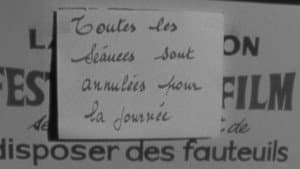 Toutes les
séances sont
annulées pour
la journée
LA ON
FEST FILM
se de
disposer des fauteuils